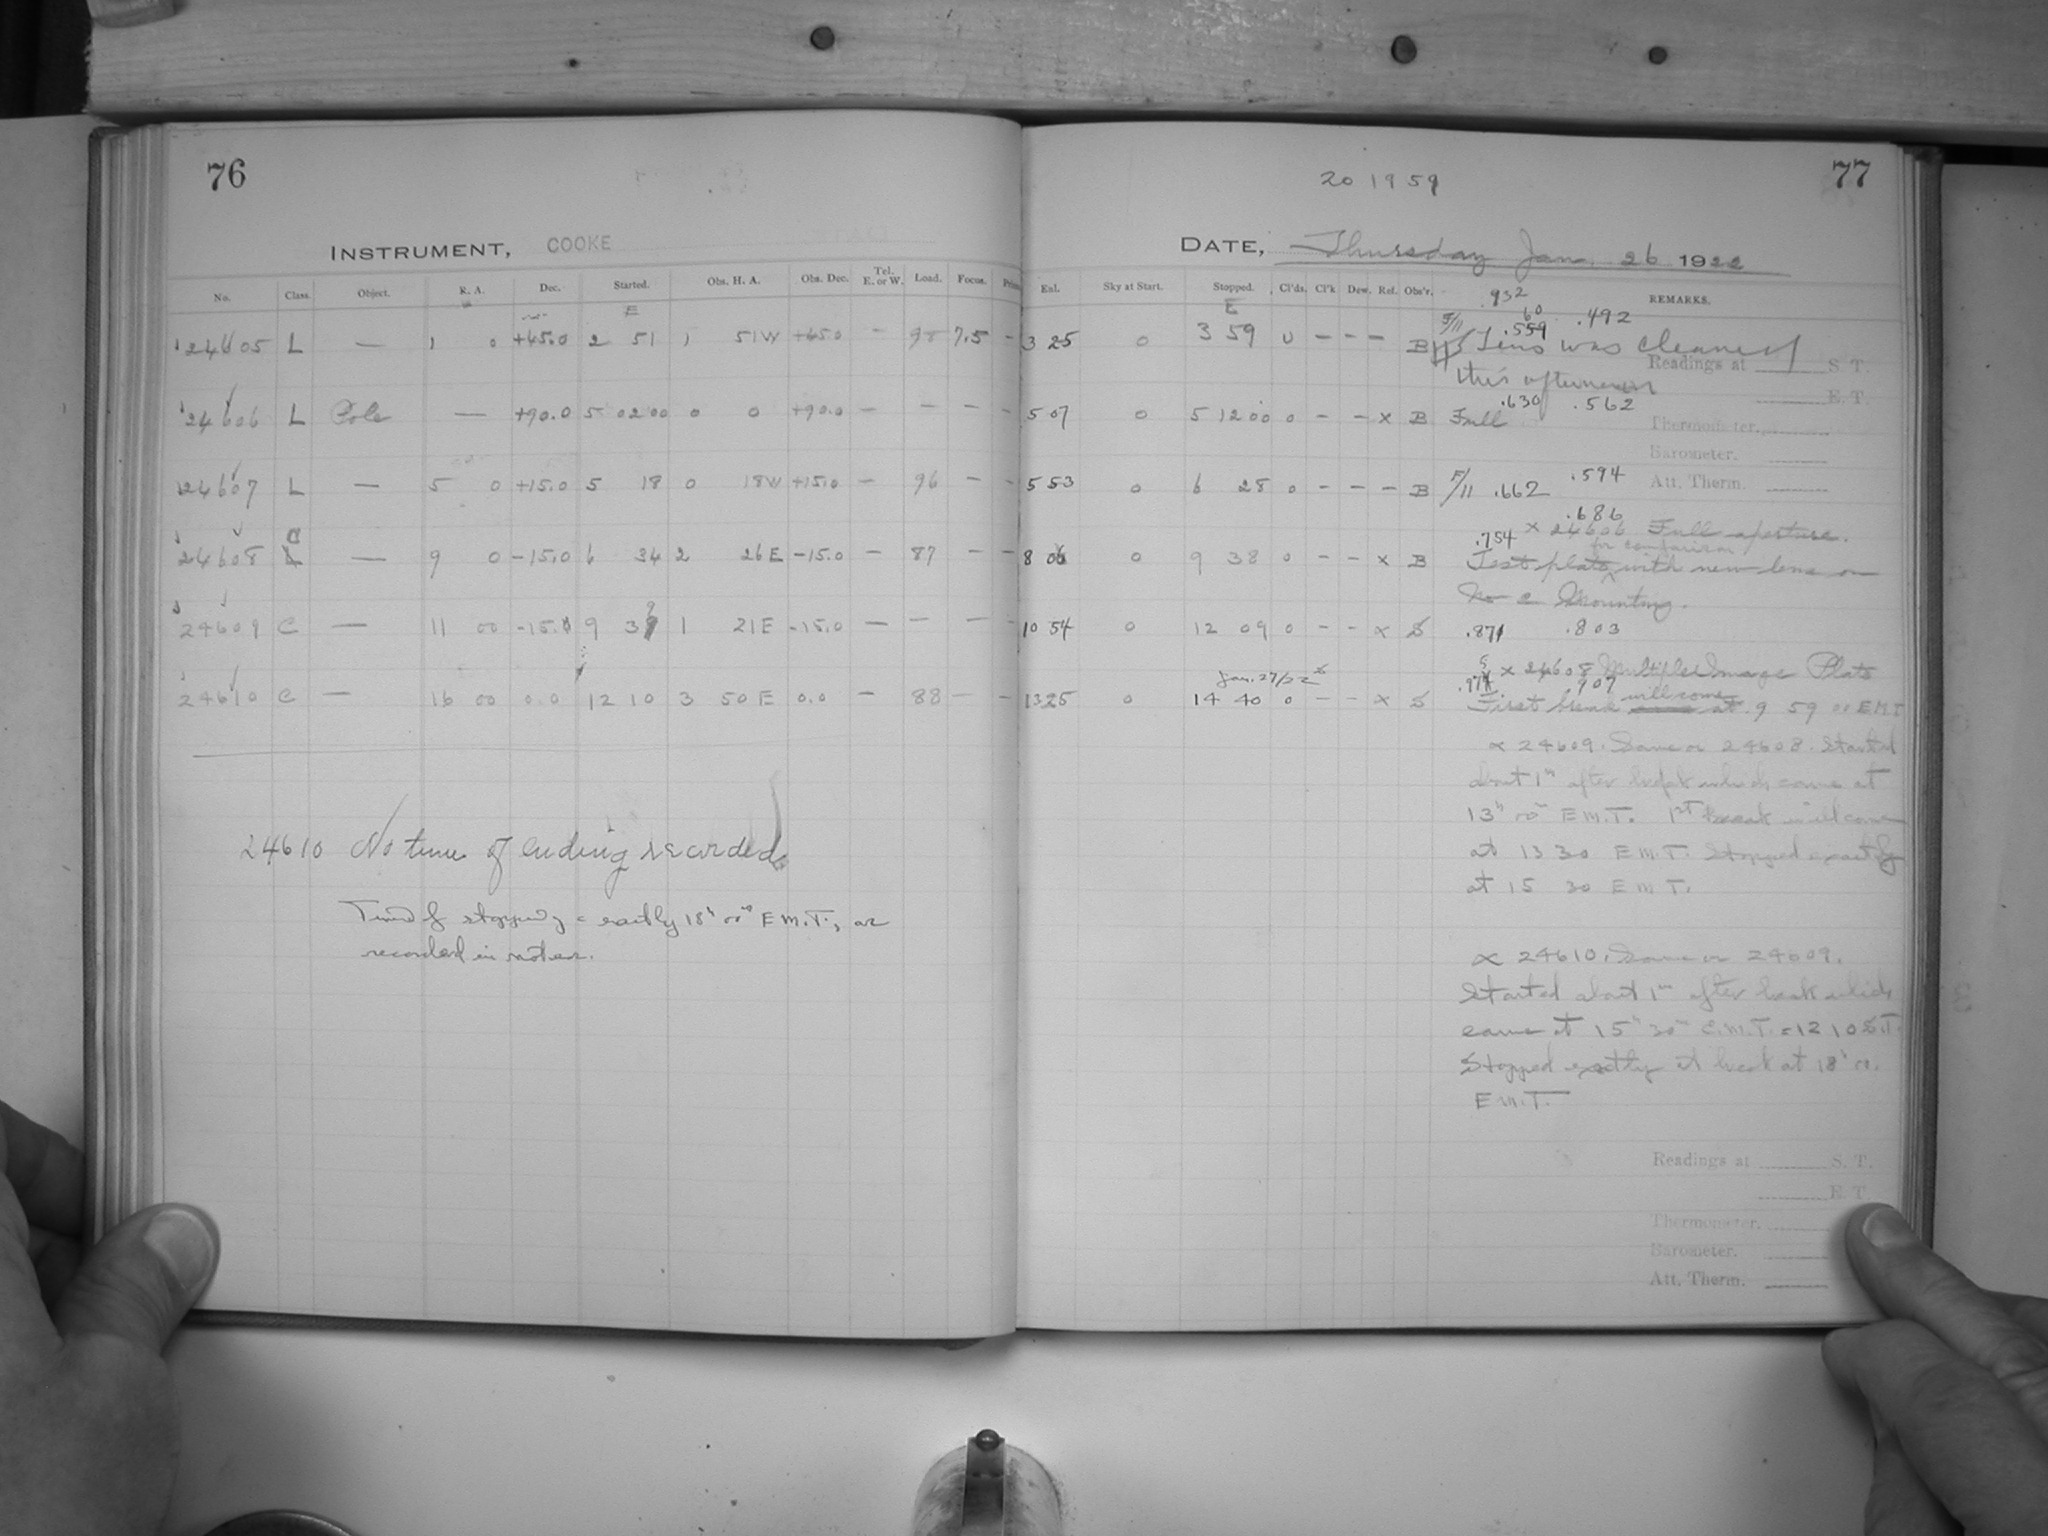 76
INSTRUMENT, COOKE
No. Class. Object. R. A. Dec. Started. Obs. H. A. Obs. Dec. Tel. E. or W. Load. Focus.
E
24605 L — 1 0 +45.0 2 51 1 51W +45.0 — 98 7.5 —
24606 L Pole — +90.0 5 02 00 0 0 +90.0 — — — —
24607 L — 5 0 +15.0 5 18 0 18W +15.0 — 96 — —
24608 C — 9 0 -15.0 6 34 2 26E -15.0 — 87 — —
24609 C — 11 00 -15.0 9 39 1 21E -15.0 — — — —
24610 C — 16 00 0.0 12 10 3 50E 0.0 — 88 — —
24610 No time of ending recorded
Time of stopping = exactly 18h 00m E.M.T., as
recorded in notes.
77
20 1959
DATE, Thursday Jan. 26 1922
Exl. Sky at Start. Stopped. Cl'ds. Cl'k Dew. Ref. Obs'r. REMARKS.
E .932
60
3 25 0 3 59 0 — — — B F/11 .559 .492
Lens was cleaned
this afternoon
Readings at S. T.
E. T.
.630 .562
5 07 0 5 12 00 0 — — x B Full
Thermometer.
Barometer.
5 53 0 6 28 0 — — — B F/11 .662 .594
Att. Therm.
.686
.754 x 24606 Full aperture.
for comparison
8 06 0 9 38 0 — — x B Test plate with new lens on
Mounting.
10 54 0 12 09 0 — — x S .871 .803
Jan. 27/22
x 24608 Multiple Image Plate
.907
will come
13 25 0 14 40 0 — — x S First break at 9 59 00 E.M.T.
x 24609. Same as 24608. Started
about 1m after break which came at
13h 00m E.M.T. 1st break will come
at 13 30 E.M.T. Stopped exactly
at 15 30 E.M.T.
x 24610. Same as 24609.
Started about 1m after break which
came at 15h 30m E.M.T. = 12 10 S.T.
Stopped exactly at break at 18h 00.
E.M.T.
Readings at S. T.
E. T.
Thermometer.
Barometer.
Att. Therm.